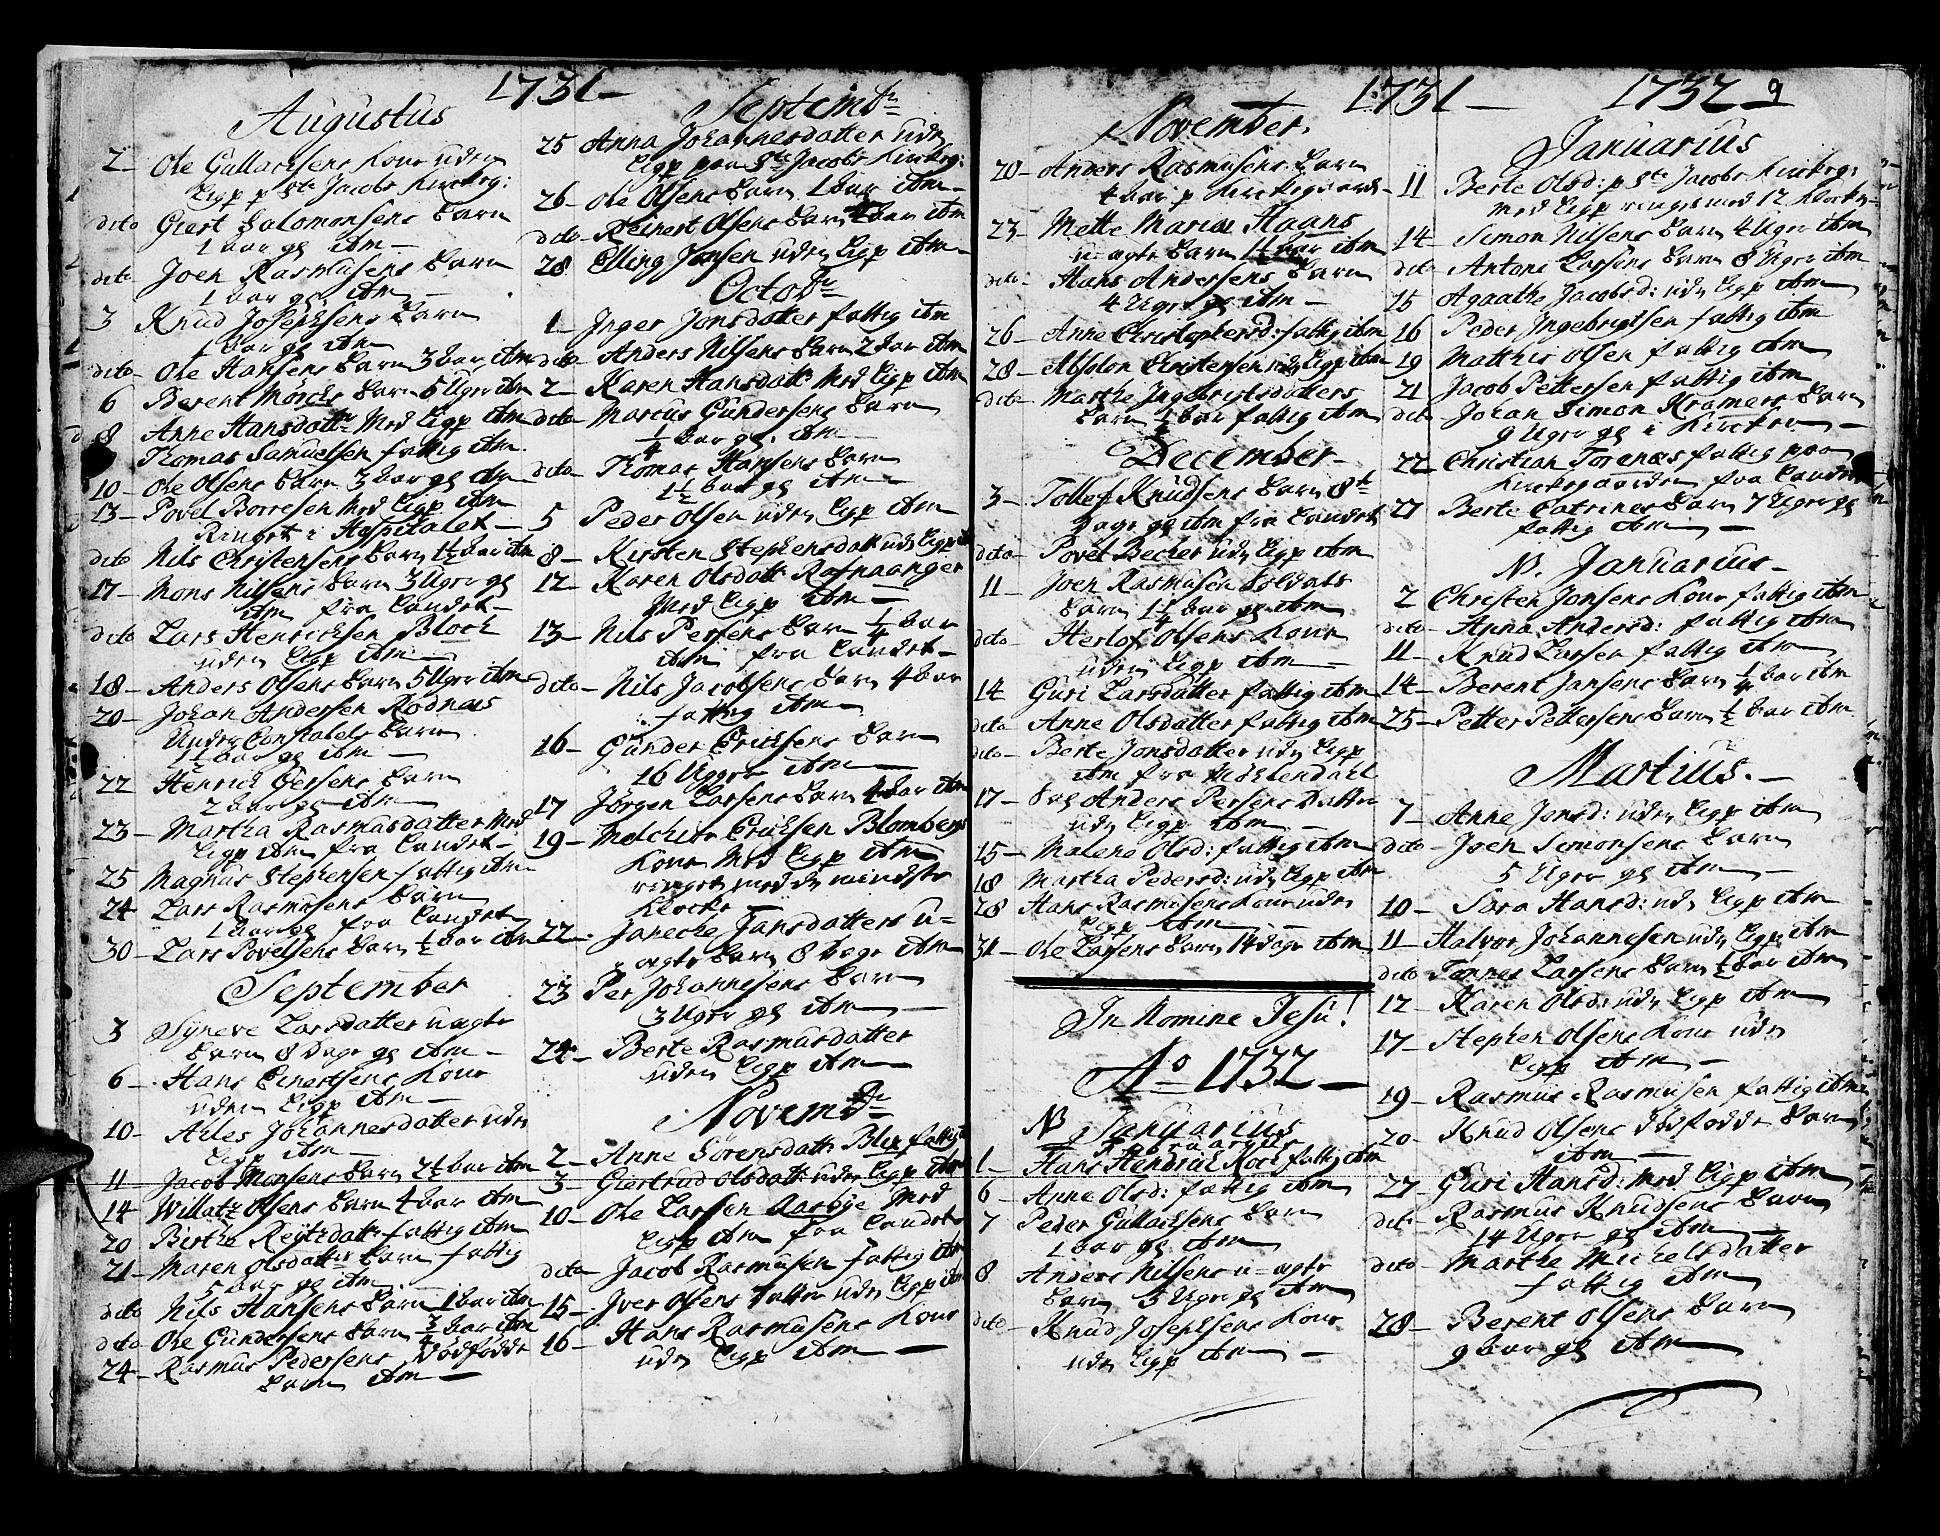 1731
Augustus
2 Ole Gullachsens Kone uden
Ligp p Ste Jacobs Kirckeg:
dito Giert Salomonsens Barn
1 Aar gl ibm
dito Joen Rasmusens Barn
1 Aar gl. ibm
3 Knud Josephsens Barn
1 Aar gl ibm
dito Ole Hansens Barn 3 Aar ibm
6 Berent Mörcks Barn 5 Uger ibm
8 Anne Hansdattr Med Ligp ibm
Thomas Samuelsen fattig ibm
10 Ole Olsens Barn 3 Aar gl ibm
13 Povel Borresen Med Ligp ibm
Ringet i Hospitalet
dito Nils Christensens Barn 1½ Aar ibm
17 Mons Nilsens Barn 3 Uger gl
ibm fra Landet
dito Lars Henricksen Block
uden Ligp ibm
18 Anders Olsens Barn 5 Uger ibm
20 Johan Andersen Rodnæs
Under Constabels Barn
1½ Aar gl ibm
22 Henrich Gersens Barn
2 Aar gl ibm
23 Martha Rasmusdatter Med
Ligp ibm fra Landet
25 Magnus Stephensen fattig ibm
24 Lars Rasmusens Barn
1 Aar gl fra Landet
30 Lars Povelsens Barn ½ Aar ibm
September
3 Syneve Larsdatter uægte
Barn 8 Dage gl ibm
6 Hans Einertsens Kone
uden Ligp ibm
10 Ales Johannesdatter uden
Ligp ibm
11 Jacob Monsens Barn 2½ Aar ibm
14 Willatz Olsens Barn 4 Aar ibm
20 Birthe Reytzdattr fattig ibm
21 Maren Olsdattr Barn fattig
5 Aar gl ibm
dito Nils Hansens Barn 1 Aar ibm
dito Ole Gundersens Barn ¾ Aar ibm
24 Rasmus Pedersens Dödfödde
Barn ibm
Septembr
25 Anna Johannesdatter uden
Ligp paa Ste Jacobs Kirckeg:
26 Ole Olsens Barn 1 Aar ibm
dito Reinert Olsens Barn Aar ibm
28 Elling Jonsen uden Ligp ibm
Octobr
1 Inger Jonsdatter fattig ibm
dito Anders Nilsens Barn 2 Aar ibm
2 Karen Hansdattr Med Ligp ibm
dito Marcus Gundersens Barn
¼ Aar gl. ibm
dito Thomas Hansens Barn
1½ Aar gl ibm
5 Peder Olsen uden Ligp ibm
8 Kirsten Stephensdatt uden Ligp ib
12 Karen Olsdattr Rafnaanger
Med Ligp ibm
13 Nils Persens Barn ¼ Aar
ibm fra Landet
dito Nils Jacobsens Barn 4 Aar
fattig ibm
16 Gunder Ericksens Barn
16 Uger ibm
17 Jörgen Larsens Barn Aar ibm
19 Melchior Ericksen Blombergs
Kone Med Ligp ibm
ringet med de mindste
Klocker
22 Janeche Jansdatters u-
ægte Barn 8 Dage ibm
23 Per Johannesens Barn
3 Uger gl ibm
24 Berte Rasmusdatter
uden Ligp ibm
Novembr
2 Anne Sörensdattr Blix fattig
3 Giertrud Olsdattr uden Ligp ibm
10 Ole Larsen Aarbye Med
Ligp ibm fra Landet
dito Jacob Rasmusen fattig ibm
15 Iver Olsens Datter uden Ligp ibm
16 Hans Rasmusens Kone
uden Ligp ibm
1731
November
20 Anders Rasmusens Barn
4 Aar p Kirckegaard
23 Mette Maria Haans
u-ægte Barn 1½ Aar ibm
dito Hans Andersens Barn
4 Uger gl ibm
26 Anne Christophersd: fattig ibm
28 Absolon Christensen uden Ligp ibm
dito Marthe Ingebrigtsdatters
Barn ½ Aar fattig ibm
December
3 Tollef Knudsens Barn 8te
Dage gl ibm fra Landet
dito Povel Becher uden Ligp ibm
11 Joen Rasmusen Soldats
Barn 1¼ Aar gl ibm
dito Herlof Olsens Kone
uden Ligp ibm
14 Guri Larsdatter fattig ibm
dito Anne Olsdatter fattig ibm
dito Berte Jonsdatter uden Ligp
ibm fra Möhlendahl
17 Sal Anders Persens Datter
uden Ligp ibm
15 Malene Olsd: fattig ibm
18 Martha Pedersd: uden Ligp ibm
28 Hans Rasmusens Kone uden
Ligp ibm
31 Ole Larsens Barn 14 Dage ibm
In Nomine Jesu!
Ao 1732
NB Januarius
Februarius
1 Hans Hendrich Koch fattig ibm
6 Anne Olsd: fattig ibm
7 Peder Gullachsens Barn
1 Aar gl ibm
8 Anders Nilsens u-ægte
Barn 3 Uger gl ibm
dito Knud Josephsens Kone
uden Ligp ibm
1732 9
Januarius
11 Berte Olsd: p Ste Jacobs Kirckeg:
med Ligp ringet med 12 Klocker
14 Simon Nilsens Barn 4 Uger ibm
dito Antoni Larsens Barn 8 Uger ibm
15 Agaathe Jacobsd: uden Ligp ibm
16 Peder Ingebrigtsen fattig ibm
19 Matthis Olsen fattig ibm
21 Jacob Pettersen fattig ibm
dito Johan Simon Kramers Barn
9 Uger gl i Kircken
22 Christian Torenæs fattig paa
Kirckegaarden fra Landet
27 Berte Catrines Barn 7 Uger gl
fattig ibm
N. Januarius
2 Christen Jonsens Kone fattig ibm
dito Anna Andersd: fattig ibm
11 Knud Larsen fattig ibm
14 Berent Jansens Barn ¼ Aar ibm
25 Petter Pettersens Barn ½ Aar ibm
Martius.
7 Anne Jonsd: uden Ligp ibm
dito Joen Simonsens Barn
5 Uger gl ibm
10 Sara Hansd: uden Ligp ibm
11 Halvor Johannesen uden Ligp ibm
dito Tönnes Larsens Barn ½ Aar ibm
12 Karen Olsd: uden Ligp ibm
17 Stephen Olsens Kone uden
Ligp ibm
19 Rasmus Rasmusen fattig ibm
20 Knud Olsens Dödfödde Barn
ibm
27 Guri Hansd: Med Ligp ibm
dito Rasmus Knudsens Barn
14 Uger gl ibm
dito Marthe Michelsdatter
fattig ibm
28 Berent Olsens Barn
9 Aar gl ibm